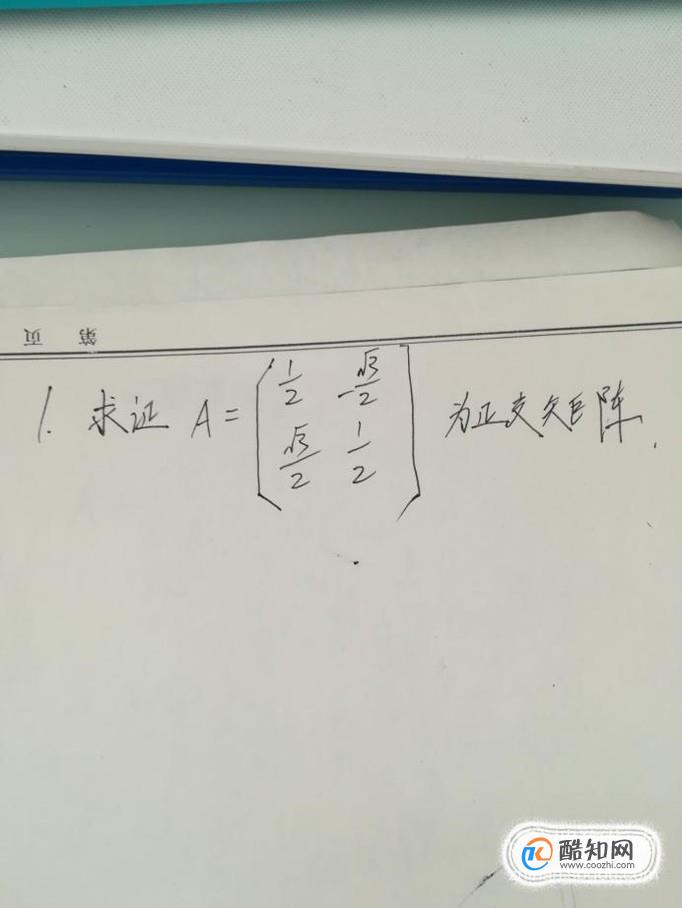 第 页
1. 求证 A = [1/2 -√3/2
√3/2 1/2] 为正交矩阵.
酷知网
www.coozhi.com